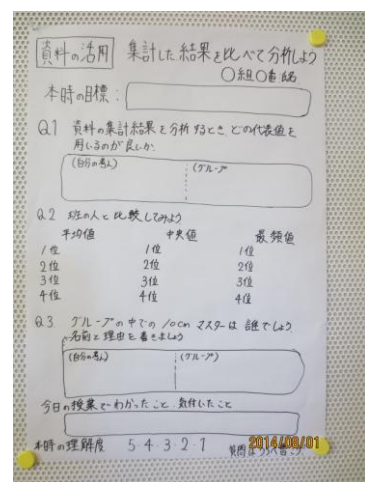 資料の活用 集計した結果を比べて分析しよう
○組○番 名
本時の目標:
Q.1 資料の集計結果を分析するとき、どの代表値を
用いるのが良いか.
(自分の考え) (グループ
Q.2 班の人と比較してみよう
平均値 中央値 最頻値
1位 1位 1位
2位 2位 2位
3位 3位 3位
4位 4位 4位
Q.3 グループの中での10cmマスターは誰でしょう
名前と理由を書きましょう
(自分の考え) (グループ)
今日の授業でわかったこと、気付いたこと
本時の理解度 5・4・3・2・1 質問は
2014/08/01